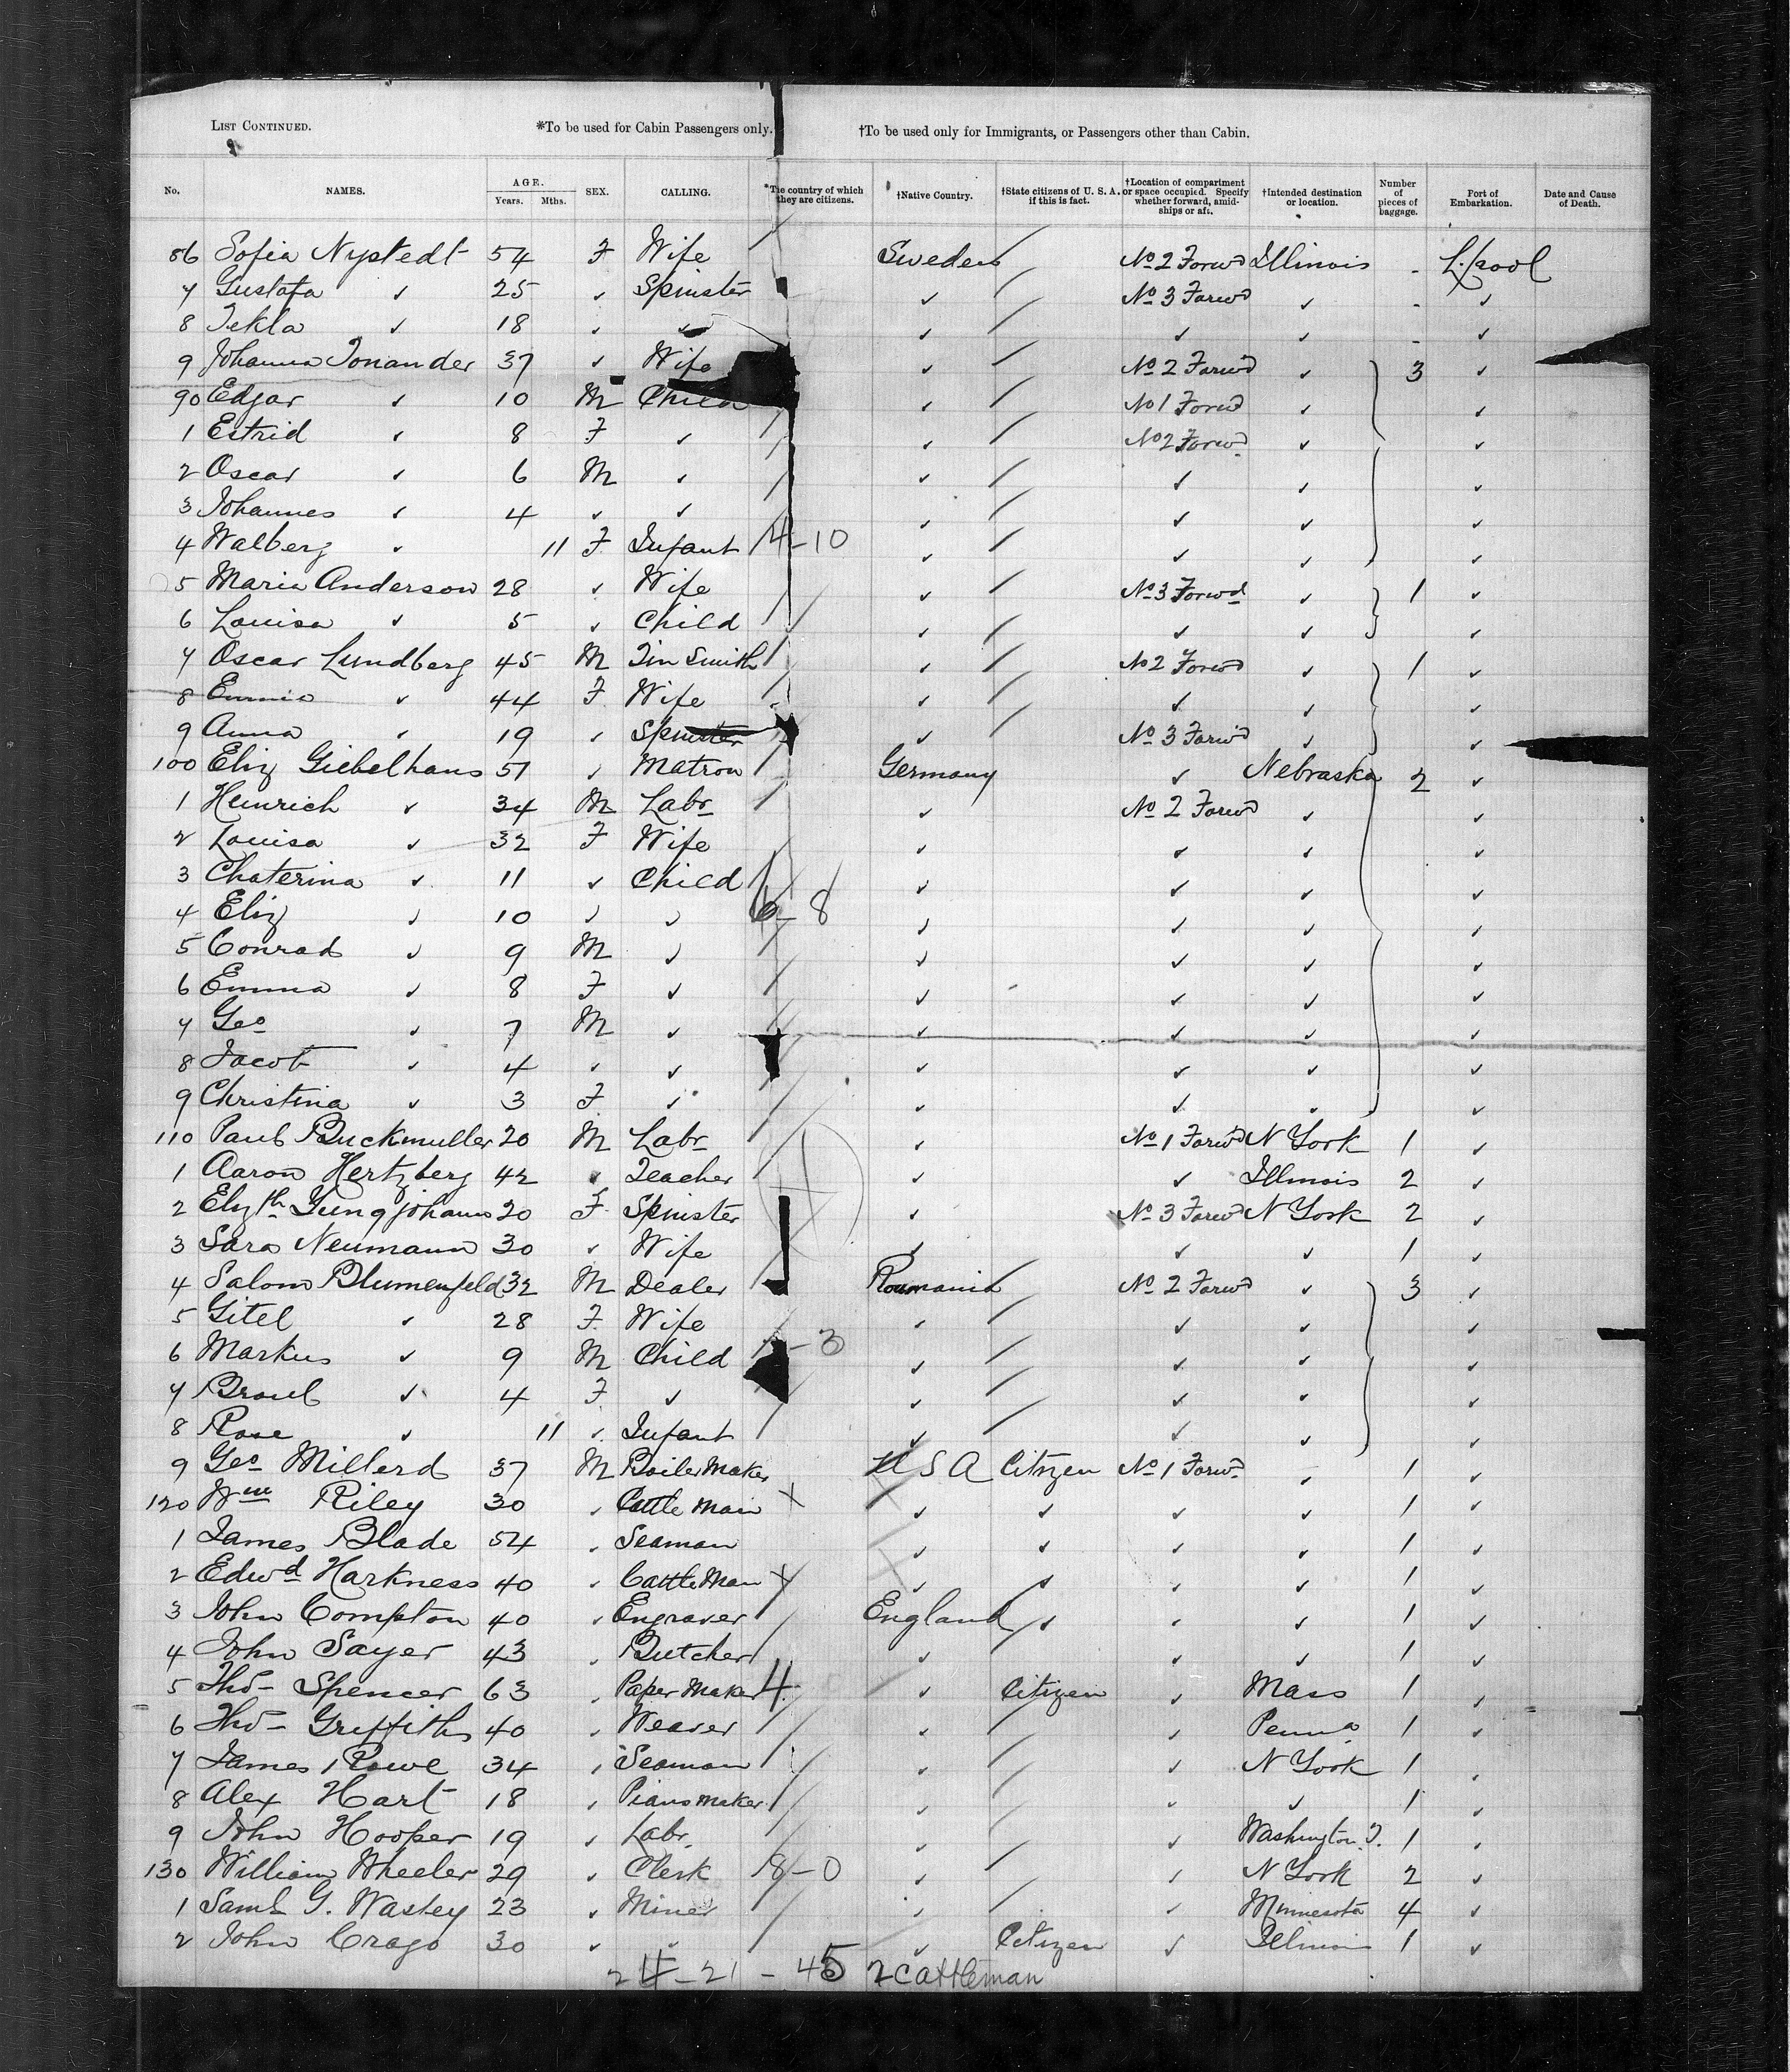 LIST CONTINUED. *To be used for Cabin Passengers only. †To be used only for Immigrants, or Passengers other than Cabin.
No. NAMES. AGE. Years. Mths. SEX. CALLING. *The country of which they are citizens. †Native Country. †State citizens of U. S. A. if this is fact. †Location of compartment or space occupied. Specify whether forward, amidships or aft. †Intended destination or location. Number of pieces of baggage. Port of Embarkation. Date and Cause of Death.
86 Sofia Nystedt 54 F Wife Sweden No 2 Forwd Illinois - L/pool
7 Gustafa ✓ 25 ✓ Spinster ✓ No 3 Forwd ✓ - ✓
8 Tekla ✓ 18 ✓ ✓ ✓ ✓ ✓ - ✓
9 Johanna Tonander 37 ✓ Wife ✓ No 2 Forwd ✓ 3 ✓
90 Edgar ✓ 10 M Child ✓ No 1 Forwd ✓ ✓
1 Estrid ✓ 8 F ✓ ✓ No 2 Forwd ✓ ✓
2 Oscar ✓ 6 M ✓ ✓ ✓ ✓ ✓
3 Johannes ✓ 4 ✓ ✓ ✓ ✓ ✓ ✓
4 Walberg ✓ 11 F Infant 4-10 ✓ ✓ ✓ ✓
5 Maria Anderson 28 ✓ Wife ✓ No 3 Forwd ✓ 1 ✓
6 Louisa ✓ 5 ✓ Child ✓ ✓ ✓ ✓
7 Oscar Lundberg 45 M Tin Smith ✓ No 2 Forwd ✓ 1 ✓
8 Emmia ✓ 44 F Wife ✓ ✓ ✓ ✓
9 Anna ✓ 19 ✓ Spinster ✓ No 3 Forwd ✓ ✓
100 Eliz Giebelhaus 51 ✓ Matron Germany ✓ Nebraska 2 ✓
1 Heinrich ✓ 34 M Labr ✓ No 2 Forwd ✓ ✓
2 Louisa ✓ 32 F Wife ✓ ✓ ✓ ✓
3 Chaterina ✓ 11 ✓ Child ✓ ✓ ✓ ✓
4 Eliz ✓ 10 ✓ ✓ 6-8 ✓ ✓ ✓ ✓
5 Conrad ✓ 9 M ✓ ✓ ✓ ✓ ✓
6 Emma ✓ 8 F ✓ ✓ ✓ ✓ ✓
7 Geo ✓ 7 M ✓ ✓ ✓ ✓ ✓
8 Jacob ✓ 4 ✓ ✓ ✓ ✓ ✓ ✓
9 Christina ✓ 3 F ✓ ✓ ✓ ✓ ✓
110 Paul Buckmuller 20 M Labr ✓ No 1 Forwd N York 1 ✓
1 Aaron Hertzberg 42 ✓ Teacher ✓ ✓ Illinois 2 ✓
2 Elizth Gungjohann 20 F Spinster ✓ No 3 Forwd N York 2 ✓
3 Sara Neumann 30 ✓ Wife ✓ ✓ ✓ 1 ✓
4 Salom Blumenfeld 32 M Dealer Roumania No 2 Forwd ✓ 3 ✓
5 Gitel ✓ 28 F Wife ✓ ✓ ✓ ✓
6 Markus ✓ 9 M Child -3 ✓ ✓ ✓ ✓
7 ✓ 4 F ✓ ✓ ✓ ✓ ✓
8 Rose ✓ 11 ✓ Infant ✓ ✓ ✓ ✓
9 Geo Millerd 37 M Boiler Maker U S A Citizen No 1 Forwd ✓ 1 ✓
120 Wm Riley 30 ✓ Cattle Man X ✓ ✓ ✓ ✓ 1 ✓
1 James Blade 54 ✓ Seaman ✓ ✓ ✓ ✓ 1 ✓
2 Edwd Harkness 40 ✓ Cattle Man X ✓ ✓ ✓ ✓ 1 ✓
3 John Compton 40 ✓ Engraver England ✓ ✓ ✓ 1 ✓
4 John Sayer 43 ✓ Butcher ✓ ✓ ✓ 1 ✓
5 Thos Spencer 63 ✓ Paper Maker 4 ✓ Citizen ✓ Mass 1 ✓
6 Thos Griffiths 40 ✓ Weaver ✓ ✓ Penna 1 ✓
7 James Rowe 34 ✓ Seaman ✓ ✓ N York 1 ✓
8 Alex Hart 18 ✓ Piano maker ✓ ✓ ✓ 1 ✓
9 John Hooper 19 ✓ Labr ✓ ✓ Washington T. 1 ✓
130 William Wheeler 29 ✓ Clerk 8-0 ✓ ✓ N York 2 ✓
1 Saml G. Wasley 23 ✓ Miner ✓ ✓ Minnesota 4 ✓
2 John Crago 30 ✓ ✓ ✓ Citizen ✓ Illinois 1 ✓
24-21-45 2 Cattleman